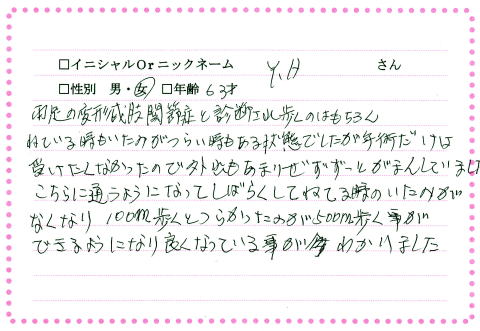 □イニシャルOrニックネーム Y.H さん
□性別 男・女 □年齢 63才
両足の変形成股関節症と診断され歩くのはもちろん
ねている時もいたみがつらい時もある状態でしたが手術だけは
受けたくなかったので外出もあまりせずずーとがまんしていました
こちらに通うようになってしばらくしてねてる時のいたみが
なくなり 100m歩くとつらかったのが500m歩く事が
できるようになり良くなっている事が わかりました